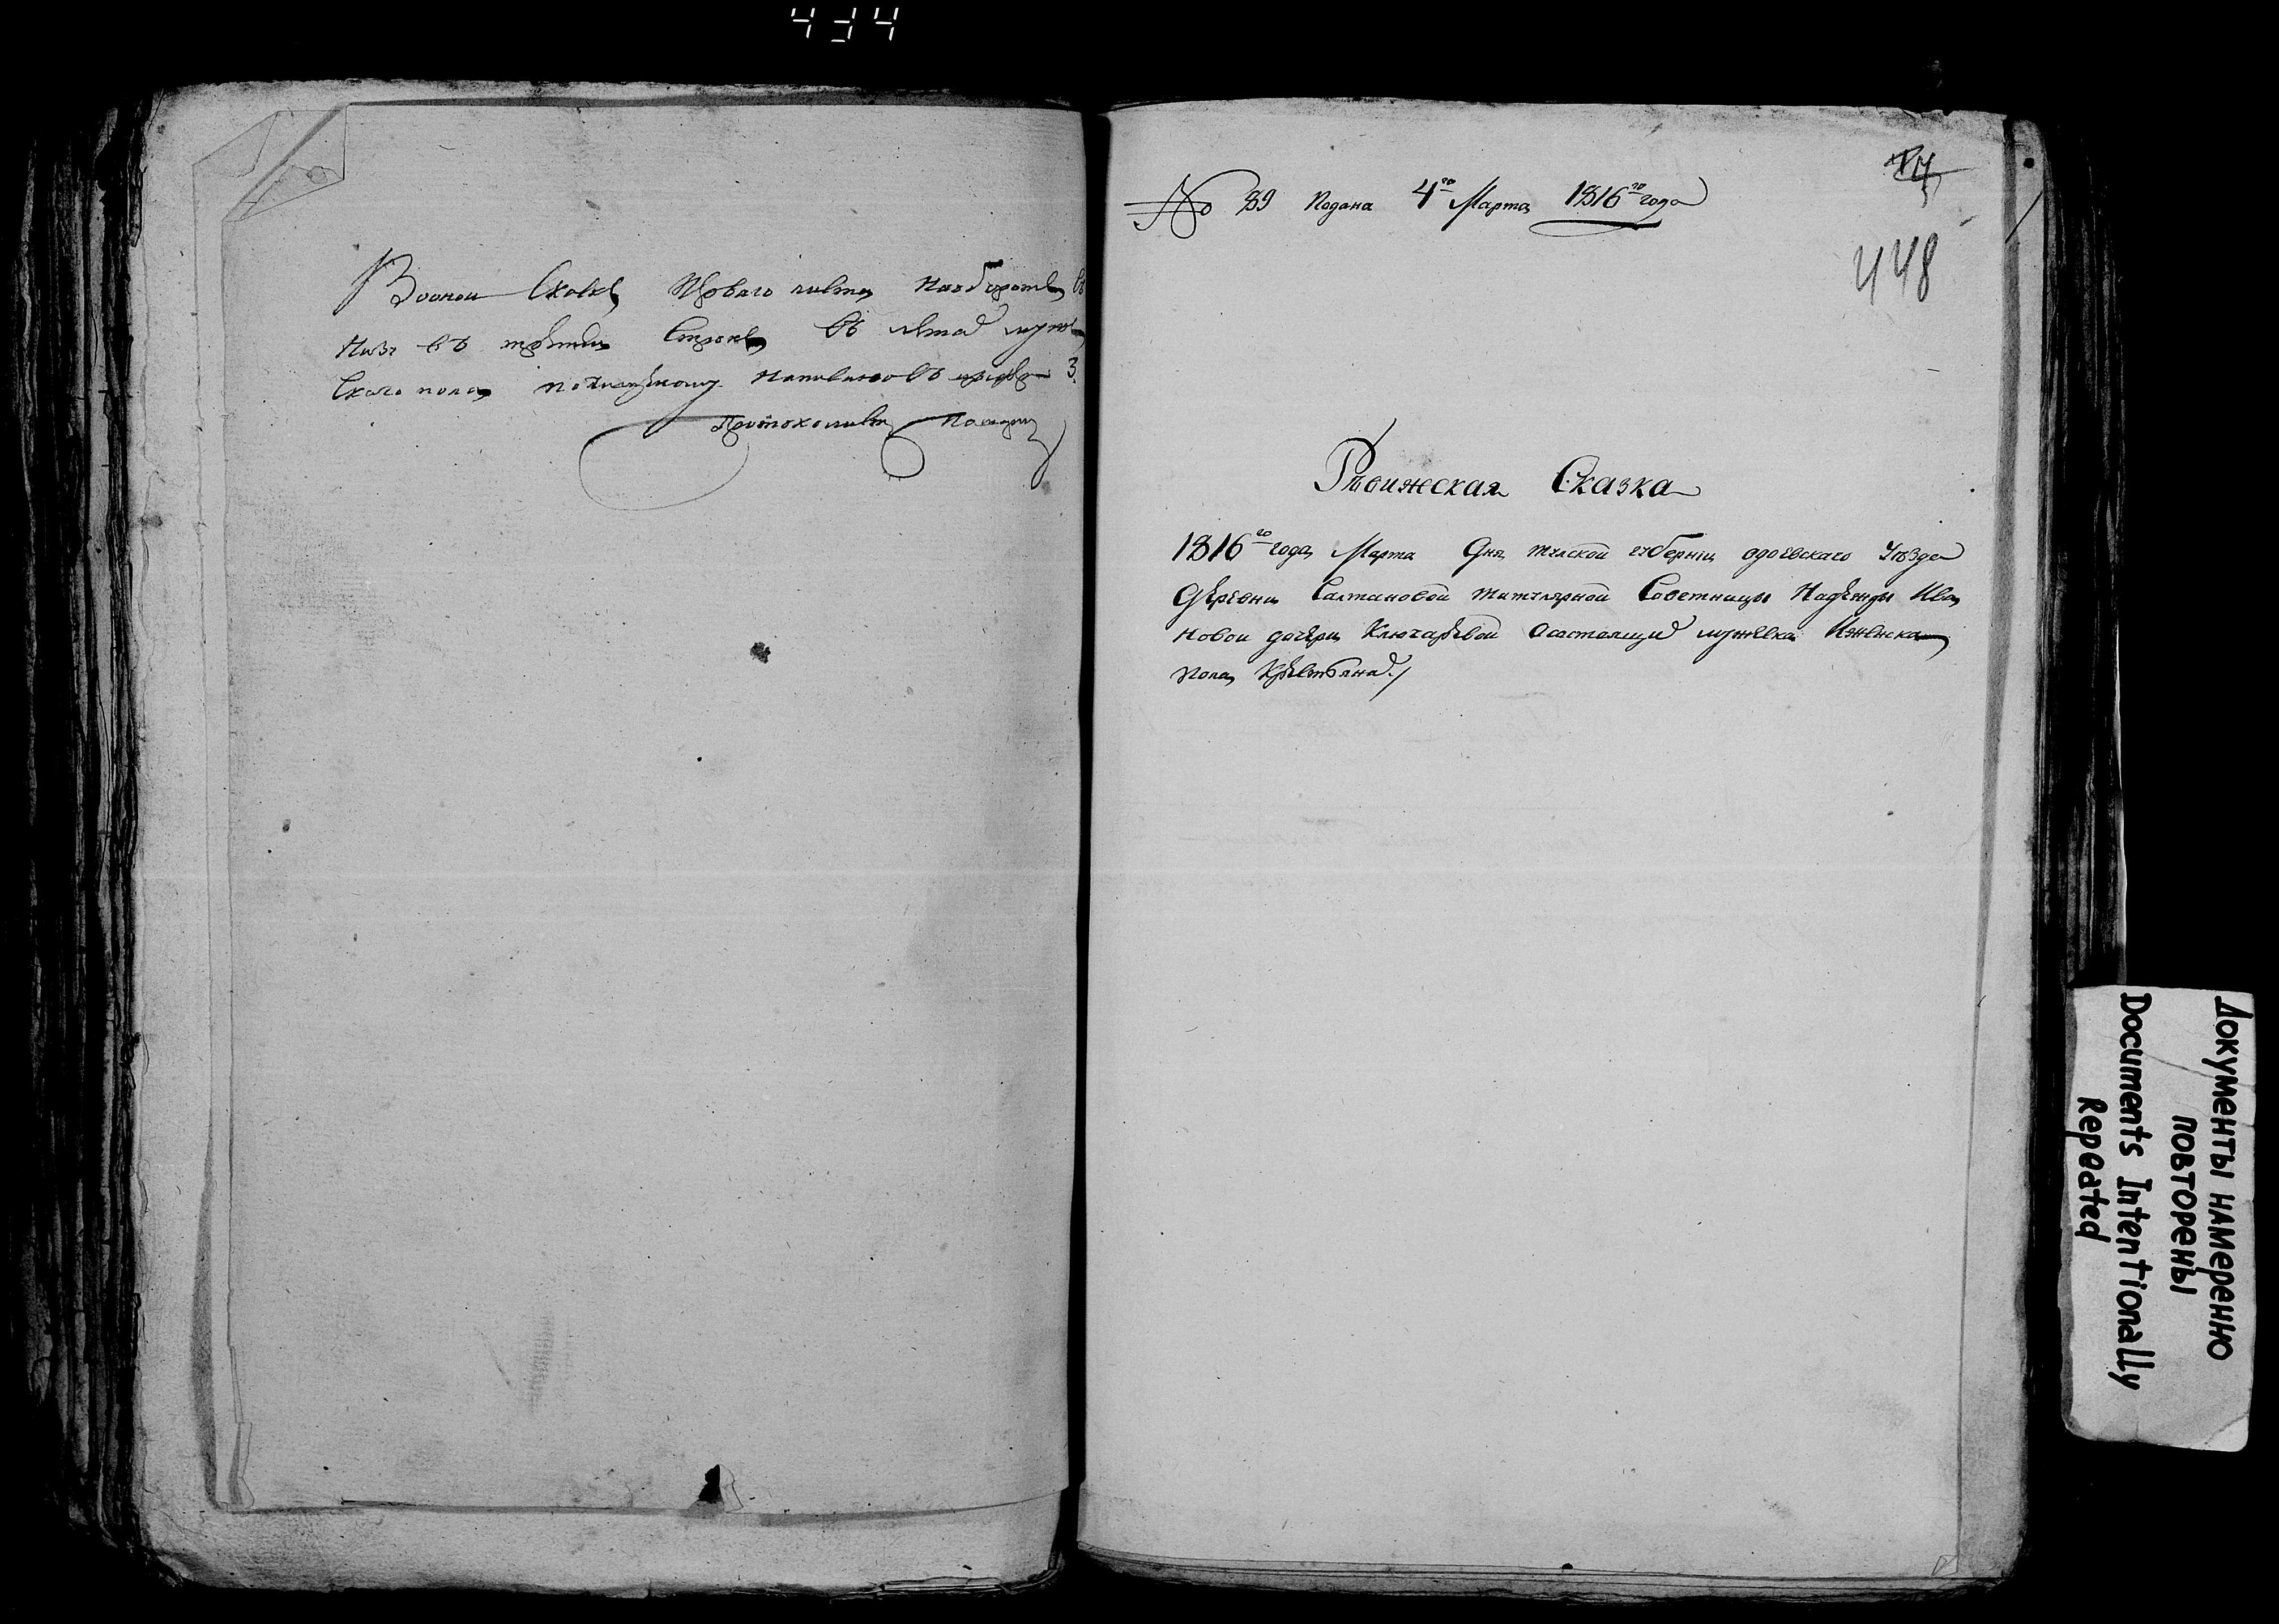 434
Воонои Скаске Перваго листа Наоборотѣ въ
Низу въ третьи Строкѣ въ летах мужe
Скаго пола написано въ 3
№ 89 Подана 4го Марта 1816го года
448
Ревижская Сказка
1816го года Марта Дня тулской губернии одоевскаго Уѣзда
деревни Салтановой титулярной Советницы Надежды Ива
новой дочери Ключаревой осостоящих мужеска Иженска
пола крестьянах
Документы намеренно
повторены
Documents Intentionally
Repeated